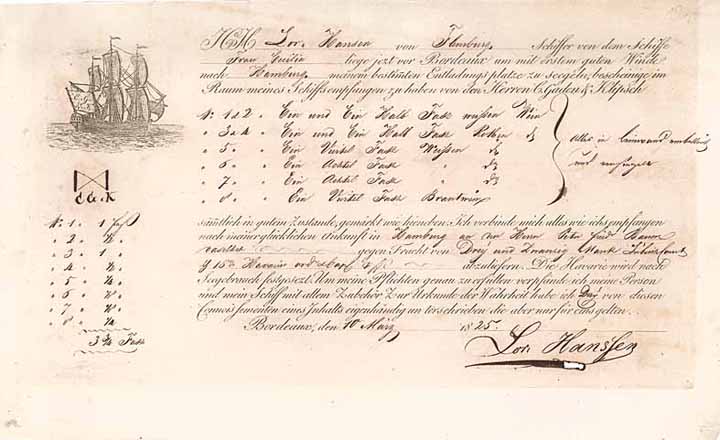 Ich Lor. Hansen von Flensburg Schiffer von dem Schiffe
Frau Cecilia liege jezt vor Bordeaux um mit erstem guten Winde
nach Hamburg meinem bestimten Entladungsplatze zu seegeln, bescheinige im
Raum meines Schiffs empfangen zu haben von den Herren C. Gaden & Klipsch
No 1 & 2 " Ein und Ein Halb Fass weissen Wein
" 3 & 4 " Ein und Ein Halb Fass Rothen do
" 5 " Ein Viertel Fass Weissen do
" 6 " Ein Achtel Fass " do
" 7 " Ein Achtel Fass do
" 8 " Ein Viertel Fass Brantwein
Alles in Leinwand emballirt
und versiegelt
C G & K
No 1 . 1 Fass
" 2 " 1/2 "
" 3 " 1 "
" 4 " 1/2 "
" 5 " 1/4 "
" 6 " 1/8 "
" 7 " 1/8 "
" 8 " 1/4
3 3/4 Fass
sämtlich in gutem Zustande, gemärkt wie hieneben. Ich verbinde mich alles wie ichs empfangen
nach meiner glücklichen Ankunft in Hamburg an den Herrn Peter
gegen Fracht von Drey und Zwanzig Mark
15% Havarie ordinaire abzuliefern. Die Havarie wird nach
Seegebrauch festgesezt. Um meine Pflichten genau zu erfüllen verpfände ich meine Person
und mein Schiff mit allem Zubehör. Zur Urkunde der Wahrheit habe ich Drey von diesen
Connossementen eines Inhalts eigenhändig unterschrieben die aber nur für eins gelten.
Bordeaux, den 10 März 1825.
Lor. Hanssen